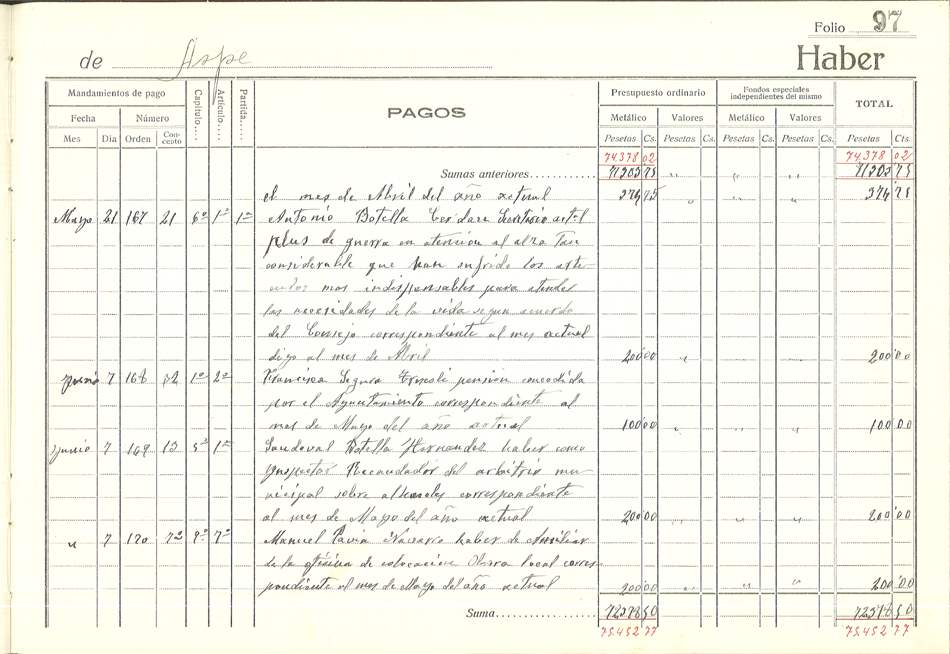 Folio 97
de Aspe Haber
Mandamientos de pago Capítulo.... Artículo.... Partida... PAGOS Presupuesto ordinario Fondos especiales independientes del mismo TOTAL
Fecha Número Metálico Valores Metálico Valores
Mes Día Orden Concepto Pesetas Cs. Pesetas Cs. Pesetas Cs. Pesetas Cs. Pesetas Cts.
74.378 02 74.378 02
Sumas anteriores 71203 75 " " " 71203 75
el mes de Abril del año actual 374 75 " " " 374 75
Mayo 21 167 21 6º 1º 1º Antonio Botella Secretario
plus de guerra en atención al alza tan
considerable que han sufrido los artí-
culos mas indispensables para atender
las necesidades de la vida segun acuerdo
del Consejo correspondiente al mes actual
digo al mes de Abril 200 00 " " " 200 00
Junio 7 168 1º 2º Francisca Segura pensión concedida
por el Ayuntamiento correspondiente al
mes de Mayo del año actual 100 00 " " " 100 00
Junio 7 169 13 5º 1º Sandoval Botella Hernandez haber como
Ynspector Recaudador del arbitrio mu-
nicipal sobre alcoholes correspondiente
al mes de Mayo del año actual 200 00 " " " 200 00
" 7 170 7º Manuel Pavia Navarro haber de Auxiliar
de la oficina de colocacion Obrera local corres-
pondiente al mes de Mayo del año actual 200 00 " " " 200 00
Suma 72378 50 72378 50
75.452 77 75.452 77